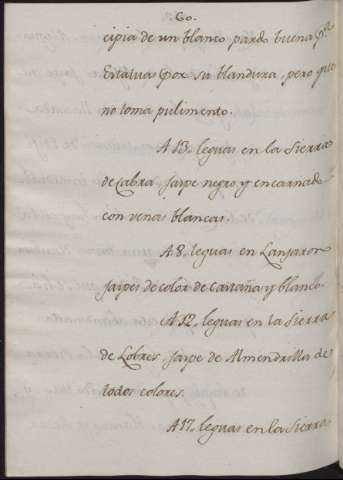 60.
cipia de un blanco pardo buena p.ª
Estatua por su blandura, pero que
no toma pulimento.
A 13. leguas en la Sierra
de Cabra Jaspe negro y encarnado
con venas blancas.
A 8. leguas en Lanjaron
Jaspes de color de Castaña y blanco
A 12. leguas en la Sierra
de Lobres Jaspe de Almendrilla de
todos colores.
A 17. leguas en la Sierra